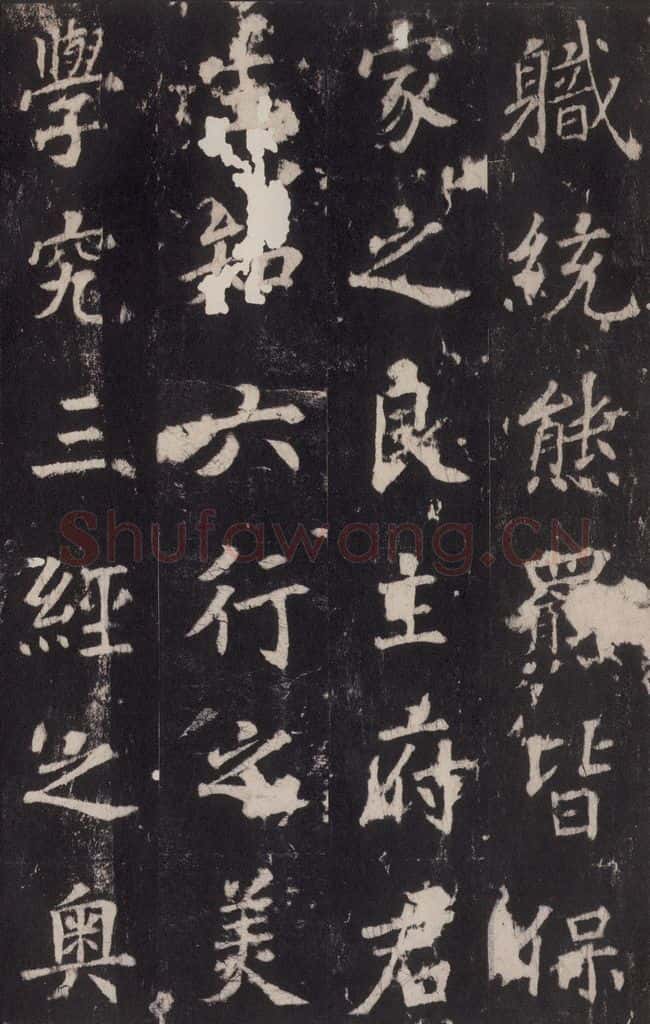 職統熊羆皆保
家之良主府君
生知六行之美
學究三經之奧
Shufawang.CN